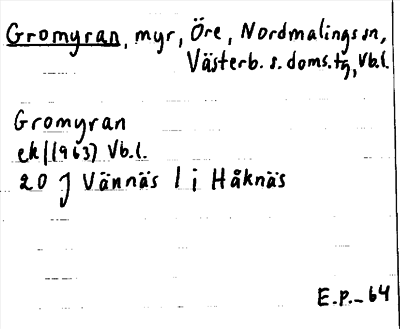 Gromyran, myr, Öre, Nordmalings sn,
Västerb. s. doms.tg, Vb.l.
Gromyran
ek/(1963) Vb.l.
20 J Vännäs l i Håknäs
E.P. - 64